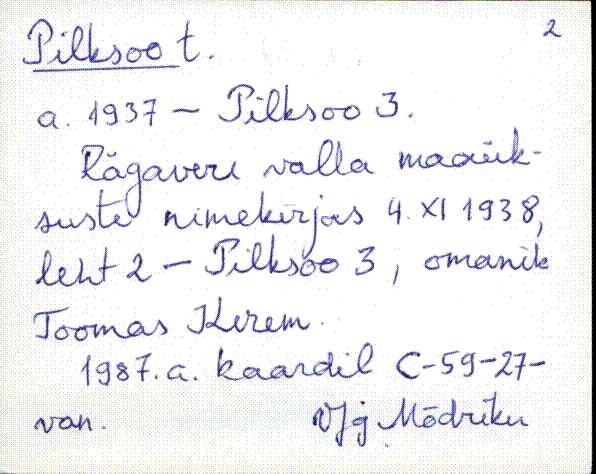 2
Pilksoo t.
a. 1937 – Pilksoo 3.
Rägavere valla maaük-
suste nimekirjas 4. XI 1938,
leht 2 – Pilksoo 3, omanik
Toomas Kerem.
1987. a. kaardil C-59-27-
van. VJg Mõdriku